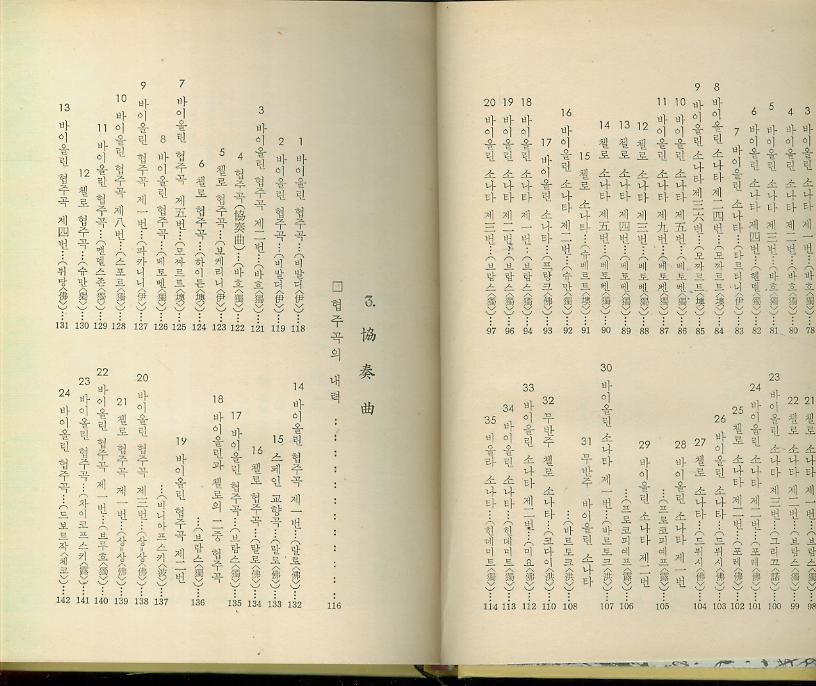 3 바이올린 소나타 제一번…(바흐〈獨〉)…78
4 바이올린 소나타 제二번…(바흐〈獨〉)…80
5 바이올린 소나타 제三번…(바흐〈獨〉)…81
6 바이올린 소나타 제四번…(헨델〈獨〉)…82
7 바이올린 소나타…(타르티니〈伊〉)…83
8 바이올린 소나타 제二四번…(모짜르트〈墺〉)…84
9 바이올린 소나타 제三六번…(모짜르트〈墺〉)…85
10 바이올린 소나타 제五번…(베토벤〈獨〉)…86
11 바이올린 소나타 제九번…(베토벤〈獨〉)…87
12 첼로 소나타 제三번…(베토벤〈獨〉)…88
13 첼로 소나타 제四번…(베토벤〈獨〉)…89
14 첼로 소나타 제五번…(베토벤〈獨〉)…90
15 첼로 소나타…(슈베르트〈墺〉)…91
16 바이올린 소나타 제二번…(슈만〈獨〉)…92
17 바이올린 소나타…(프랑크〈佛〉)…93
18 바이올린 소나타 제一번…(브람스〈獨〉)…94
19 바이올린 소나타 제二번…(브람스〈獨〉)…96
20 바이올린 소나타 제三번…(브람스〈獨〉)…97
21 첼로 소나타 제一번…(브람스〈獨〉)…98
22 첼로 소나타 제二번…(브람스〈獨〉)…99
23 바이올린 소나타 제三번…(그리끄〈諾〉)…100
24 바이올린 소나타 제一번…(포레〈佛〉)…101
25 첼로 소나타 제二번…(포레〈佛〉)…102
26 바이올린 소나타…(드뷔시〈佛〉)…103
27 첼로 소나타…(드뷔시〈佛〉)…104
28 바이올린 소나타 제一번
…(프로코피에프〈露〉)…105
29 바이올린 소나타 제二번
…(프로코피에프〈露〉)…106
30 바이올린 소나타 제一번…(바르토크〈洪〉)…107
31 무반주 바이올린 소나타
…(바르토크〈洪〉)…108
32 무반주 첼로 소나타…(코다이〈洪〉)…110
33 바이올린 소나타 제二번…(미요〈佛〉)…112
34 바이올린 소나타…(힌데미트〈獨〉)…113
35 비올라 소나타…(힌데미트〈獨〉)…114
3. 協奏曲
□ 협주곡의 내력……116
1 바이올린 협주곡…(비발디〈伊〉)…118
2 바이올린 협주곡…(비발디〈伊〉)…119
3 바이올린 협주곡 제二번…(바흐〈獨〉)…121
4 협주곡(協奏曲)…(바흐〈獨〉)…122
5 첼로 협주곡…(보케리니〈伊〉)…123
6 첼로 협주곡…(하이든〈墺〉)…124
7 바이올린 협주곡 제五번…(모짜르트〈墺〉)…125
8 바이올린 협주곡…(베토벤〈獨〉)…126
9 바이올린 협주곡 제一번…(파가니니〈伊〉)…127
10 바이올린 협주곡 제八번…(스포르〈獨〉)…128
11 바이올린 협주곡…(멘델스존〈獨〉)…129
12 첼로 협주곡…(슈만〈獨〉)…130
13 바이올린 협주곡 제四번…(뷔땅〈佛〉)…131
14 바이올린 협주곡 제一번…(랄로〈佛〉)…132
15 스페인 교향곡…(랄로〈佛〉)…133
16 첼로 협주곡…(랄로〈佛〉)…134
17 바이올린 협주곡…(브람스〈獨〉)…135
18 바이올린과 첼로의 二중 협주곡
…(브람스〈獨〉)…136
19 바이올린 협주곡 제二번
…(비니아프스키〈波〉)…137
20 바이올린 협주곡 제三번…(상=상〈佛〉)…138
21 첼로 협주곡 제一번…(상=상〈佛〉)…139
22 바이올린 협주곡 제一번…(브루흐〈獨〉)…140
23 바이올린 협주곡…(차이코프스키〈露〉)…141
24 바이올린 협주곡…(드보르작〈체코〉)…142